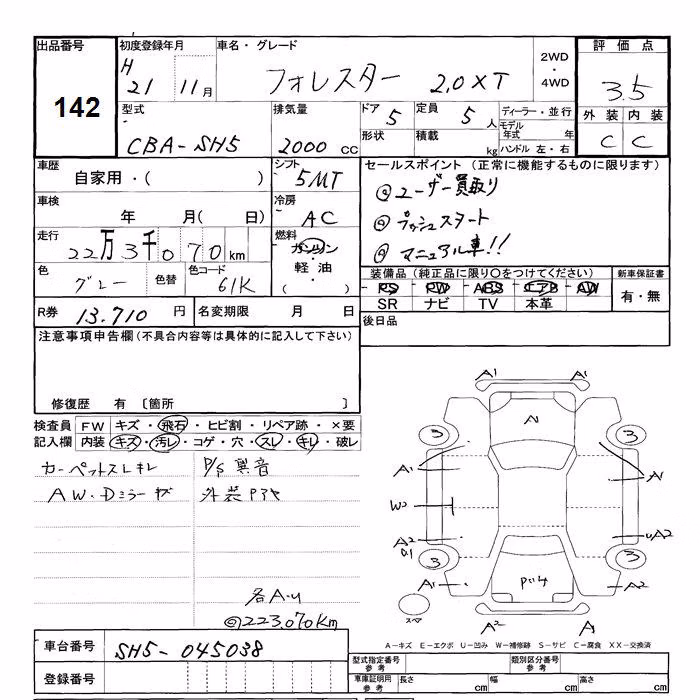 出品番号 初度登録年月 車名・グレード 2WD・4WD 評価点
142 H 21 11月 フォレスター 2.0XT 3.5
型式 排気量 ドア 5 定員 5人 ディーラー・並行 外装 内装
CBA-SH5 2000 CC 形状 積載 kg モデル年式 年 ハンドル 左・右 C C
車歴 自家用・( ) シフト 5MT セールスポイント (正常に機能するものに限ります)
車検 年 月( 日) 冷房 AC @ユーザー買取り
@プッシュスタート
走行 22万3千070km 燃料 ガソリン・軽油・( ) @マニュアル車!!
色 グレー 色替 色コード 61K 装備品 (純正品に限り○をつけてください) 新車保証書
PS PW ABS エアB AW 有・無
SR ナビ TV 本革
R券 13.710 円 名変期限 月 日 後日品
注意事項申告欄(不具合内容等は具体的に記入して下さい)
修復歴 有 〔箇所 〕
検査員 FW キズ・飛石・ヒビ割・リペア跡・×要
記入欄 内装 キズ・汚レ・コゲ・穴・スレ・キレ・破レ
カーペットスレキレ P/S異音
AW・Dミラーキズ 外装
各A・U
@223,070km
A1 A1
A
3 3
A1 A1
W2
A2 UA2
3 3
A1 A2
スペア A2 A1
車台番号 SH5-045038
登録番号
A-キズ E-エクボ U-凹み W-補修跡 S-サビ C-腐食 XX-交換済
型式指定番号 参考 類別区分番号 参考
車庫証明用 参考 長さ cm 幅 cm 高さ cm